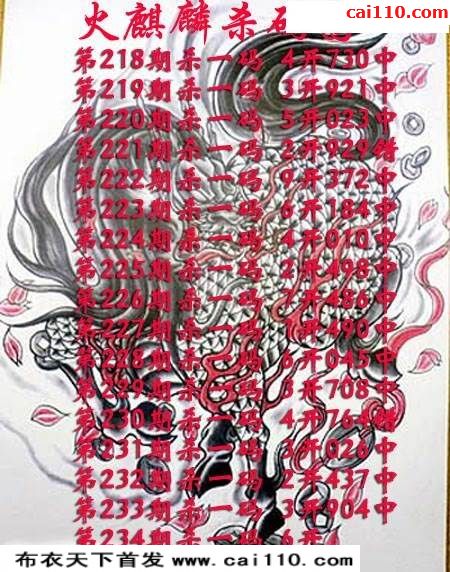 cai110.com
火麒麟杀码
第218期杀一码 4开730中
第219期杀一码 3开921中
第220期杀一码 5开023中
第221期杀一码 2开929错
第222期杀一码 9开372中
第223期杀一码 6开184中
第224期杀一码 4开010中
第225期杀一码 2开498中
第226期杀一码 7开486中
第227期杀一码 1开490中
第228期杀一码 6开045中
第229期杀一码 3开708中
第230期杀一码 4开764错
第231期杀一码 3开026中
第232期杀一码 2开437中
第233期杀一码 3开904中
第234期杀一码 6开
布衣天下首发 www.cai110.com